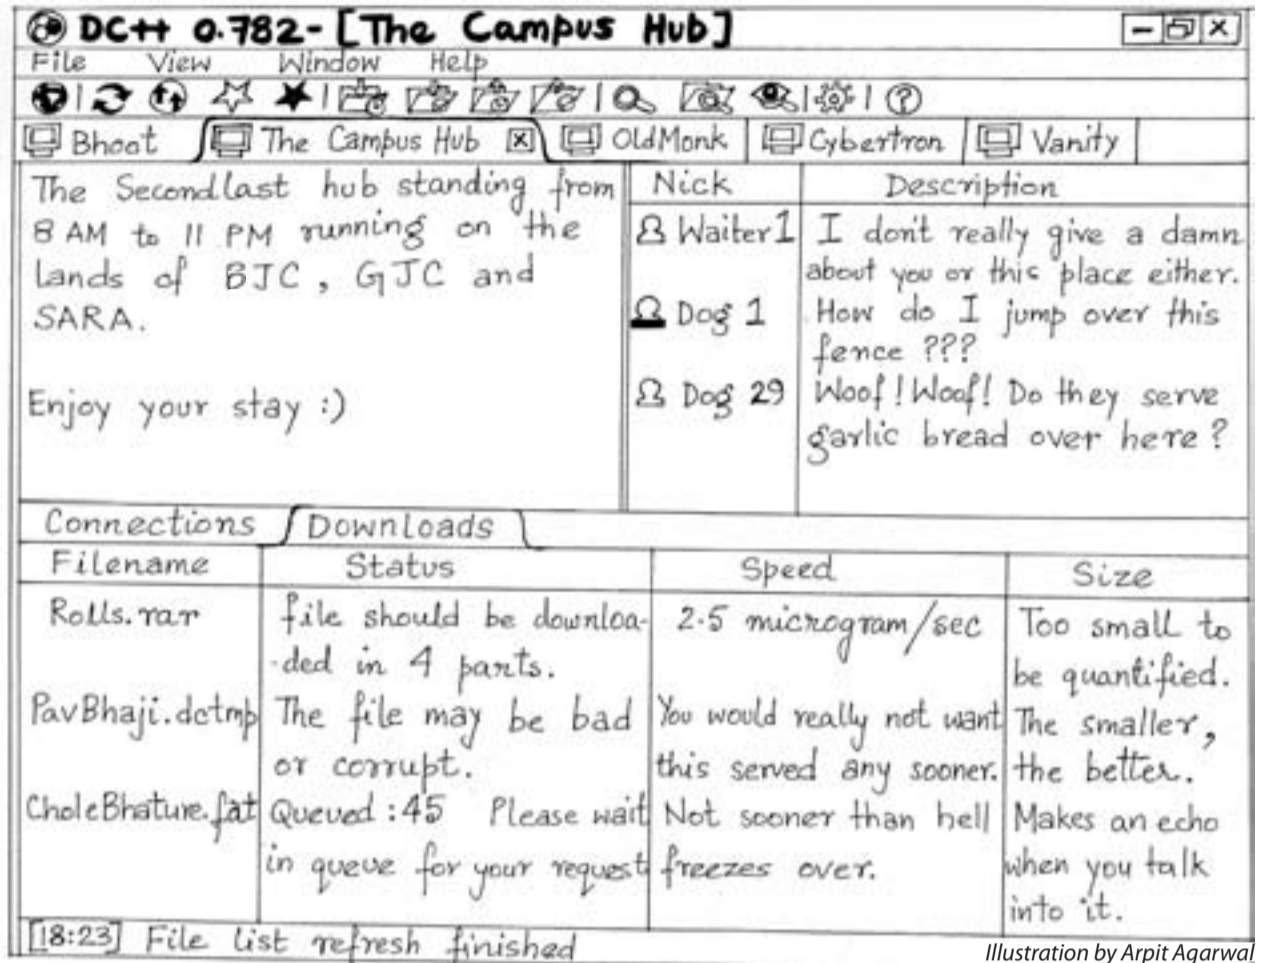 DC++ 0.782- [The Campus Hub]
File View Window Help
Bhoot The Campus Hub OldMonk Cybertron Vanity
The Secondlast hub standing from
8 AM to 11 PM running on the
lands of BJC, GJC and
SARA.
Enjoy your stay :)
Nick Description
Waiter1 I dont really give a damn
about you or this place either.
Dog 1 How do I jump over this
fence ???
Dog 29 Woof! Woof! Do they serve
garlic bread over here?
Connections Downloads
Filename Status Speed Size
Rolls.rar file should be downloa- 2.5 microgram/sec Too small to
-ded in 4 parts. be quantified.
PavBhaji.dctmp The file may be bad You would really not want The smaller,
or corrupt. this served any sooner. the better.
CholeBhature.fat Queued :45 Please wait Not sooner than hell Makes an echo
in queue for your request freezes over. when you talk
into it.
[18:23] File list refresh finished
Illustration by Arpit Agarwal